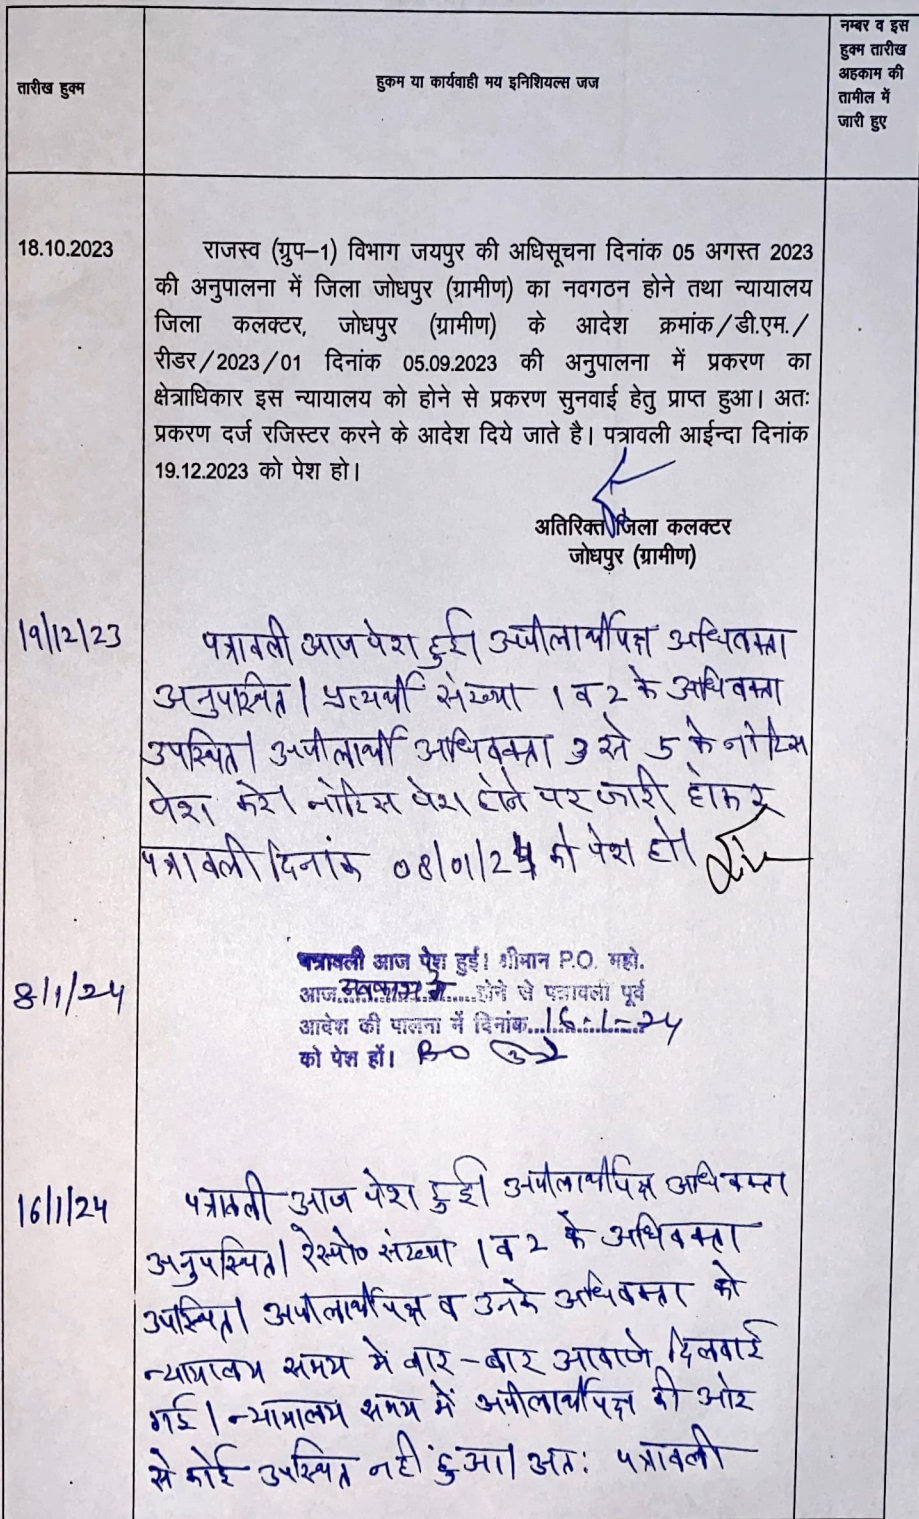 तारीख हुक्म
हुकम या कार्यवाही मय इनिशियल्स जज
नम्बर व इस
हुक्म तारीख
अहकाम की
तामील में
जारी हुए
18.10.2023
राजस्व (ग्रुप–1) विभाग जयपुर की अधिसूचना दिनांक 05 अगस्त 2023
की अनुपालना में जिला जोधपुर (ग्रामीण) का नवगठन होने तथा न्यायालय
जिला कलक्टर, जोधपुर (ग्रामीण) के आदेश क्रमांक/डी.एम./
रीडर/2023/01 दिनांक 05.09.2023 की अनुपालना में प्रकरण का
क्षेत्राधिकार इस न्यायालय को होने से प्रकरण सुनवाई हेतु प्राप्त हुआ। अतः
प्रकरण दर्ज रजिस्टर करने के आदेश दिये जाते है। पत्रावली आईन्दा दिनांक
19.12.2023 को पेश हो।
अतिरिक्त जिला कलक्टर
जोधपुर (ग्रामीण)
19/12/23
पत्रावली आज पेश हुई। अपीलार्थीपक्ष अधिवक्ता
अनुपस्थित। प्रत्यर्थी संख्या 1 व 2 के अधिवक्ता
उपस्थित। अपीलार्थी अधिवक्ता 3 से 5 के नोटिस
पेश करे। नोटिस पेश होने पर जारी होकर
पत्रावली दिनांक 08/01/24 को पेश हो।
8/1/24
पत्रावली आज पेश हुई। श्रीमान P.O. महो.
आज अवकाश में होने से पत्रावली पूर्व
आदेश की पालना में दिनांक 16-1-24
को पेश हों।
16/1/24
पत्रावली आज पेश हुई। अपीलार्थीपक्ष अधिवक्ता
अनुपस्थित। रेस्पो० संख्या 1 व 2 के अधिवक्ता
उपस्थित। अपीलार्थीपक्ष व उनके अधिवक्ता को
न्यायालय समय में बार-बार आवाजे दिलवाई
गई। न्यायालय समय में अपीलार्थीपक्ष की ओर
से कोई उपस्थित नहीं हुआ। अत: पत्रावली